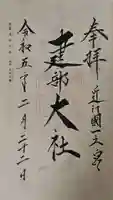 奉拝
近江國一之宮
建部大社
令和五年二月二十二日